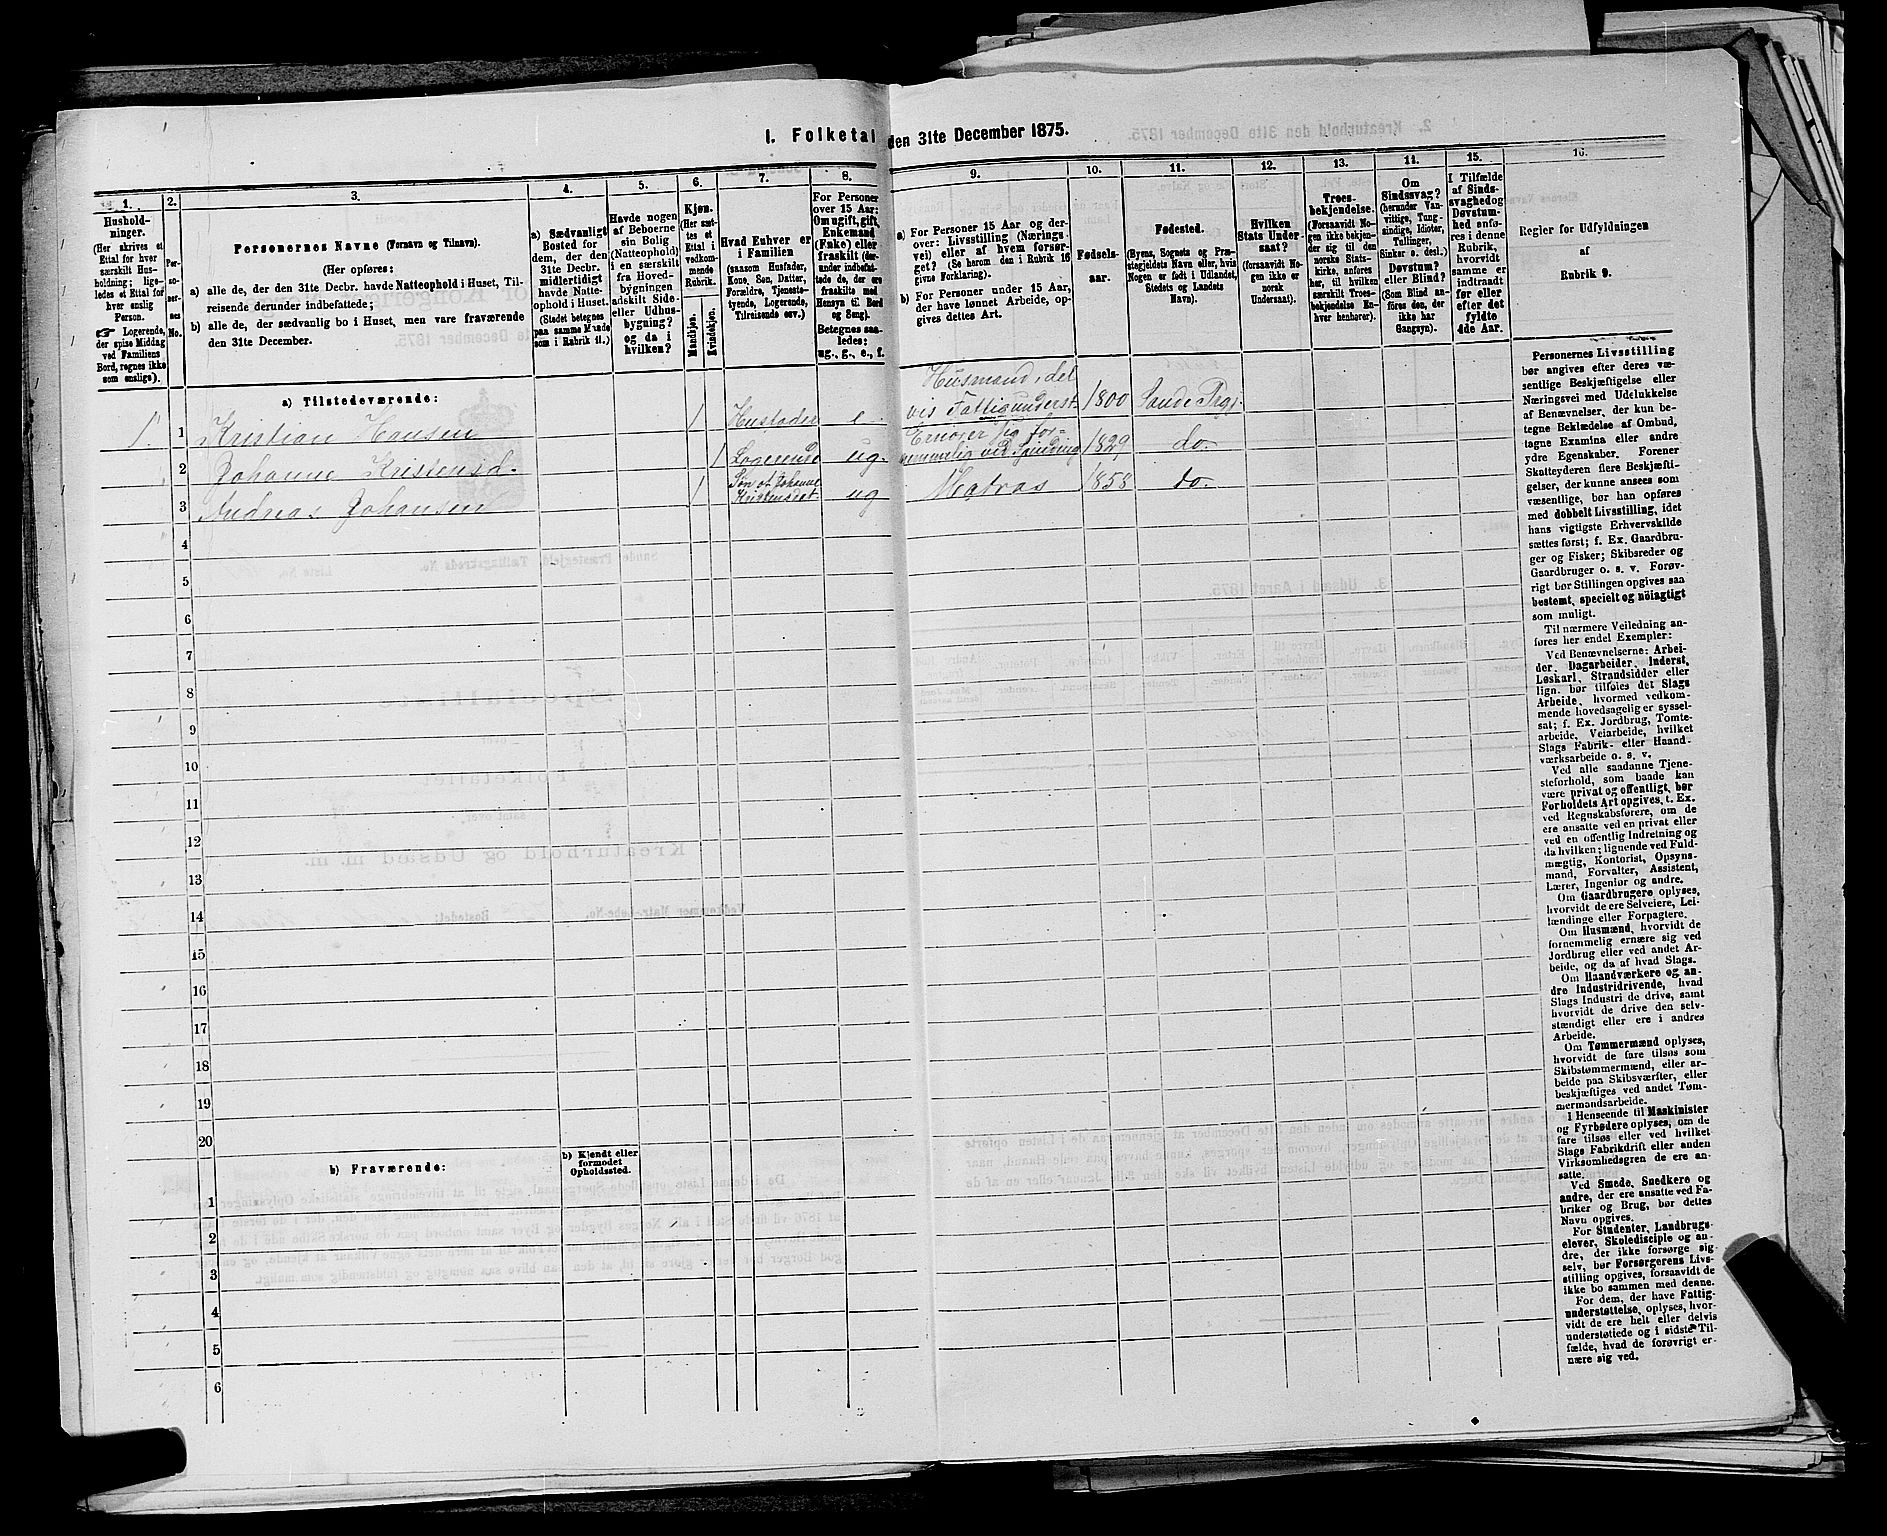 I. Folketal den 31te December 1875.
1.
2.
3.
4.
5.
6.
7.
8.
9.
10.
11.
12.
13.
14.
15.
16.
Hushold-
ninger.
(Her skrives et
Ettal for hver
særskilt Hus-
holdning; lige-
ledes et Ettal for
hver enslig
Person.
☞ Logerende,
der spise Middag
ved Familiens
Bord, regnes ikke
som enslige).
Per-
so-
ner-
nes
No.
Personernes Navne (Fornavn og Tilnavn).
(Her opføres:
a) alle de, der den 31te Decbr. havde Natteophold i Huset, Til-
reisende derunder indbefattede;
b) alle de, der sædvanlig bo i Huset, men vare fraværende
den 31te December.
a) Sædvanligt
Bosted for
dem, der den
31te Decbr.
midlertidigt
havde Natte-
ophold i Huset.
(Stedet betegnes
paa samme Maade
som i Rubrik 11.)
Havde nogen
af Beboerne
sin Bolig
(Natteophold)
i en særskilt
fra Hoved-
bygningen
adskilt Side-
eller Udhus-
bygning?
og da i
hvilken?
Kjøn.
(Her sæt-
tes et
Ettal i
vedkom-
mende
Rubrik.
Mandkjøn.
Kvindekjøn.
Hvad Enhver er
i Familien
(saasom Husfader,
Kone, Søn, Datter,
Forældre, Tjeneste-
tyende, Logerende,
Tilreisende osv.)
For Personer
over 15 Aar:
Om ugift, gift,
Enkemand
(Enke) eller
fraskilt (der-
under indbefat-
tede de, der ere
fraskilte med
Hensyn til Bord
og Seng).
Betegnes saa-
ledes:
ug., g., e., f.
a) For Personer 15 Aar og der-
over: Livsstilling (Nærings-
vei) eller af hvem forsør-
get? (Se herom den i Rubrik 16
givne Forklaring).
b) For Personer under 15 Aar,
der have lønnet Arbeide, op-
gives dettes Art.
Fødsels-
aar.
Fødested.
(Byens, Sognets og Præ-
stegjeldets Navn eller, hvis
Nogen er født i Udlandet,
Stedets og Landets
Navn).
Hvilken
Stats Under-
saat?
(forsaavidt No-
gen ikke er
norsk
Undersaat).
Troes-
bekjendelse.
(Forsaavidt No-
gen ikke bekjen-
der sig til den
norske Stats-
kirke, anføres
her, til hvilken
særskilt Troes-
bekjendelse En-
hver henhører).
Om
Sindssvag?
(herunder Van-
vittige, Tung-
sindige, Idioter,
Tullinger,
Sinker o. desl.)
Døvstum?
eller Blind?
(Som Blind an-
føres den, der
ikke har
Gangsyn).
I Tilfælde
af Sinds-
svaghed og
Døvstum-
hed anfø-
res i denne
Rubrik,
hvorvidt
samme er
indtraadt
før eller
efter det
fyldte
4de Aar.
Regler for Udfyldningen
af
Rubrik 9.
a) Tilstedeværende:
1. 1 Kristian Hansen 1 Husfader e. Husmand, del
vis Fattigunderst. 1800 Sande Prgj.
2 Johanne Kristensd. 1 Logerende ug. Ernører sig for-
nemmelig ved Spinding 1829 do.
3 Andreas Johansen 1 Søn af Johanne
Kristensdat. ug Matros 1858 do.
4
5
6
7
8
9
10
11
12
13
14
15
16
17
18
19
20
b) Fraværende:
b) Kjendt eller
formodet
Opholdssted.
1
2
3
4
5
6
Personernes Livsstilling
bør angives efter deres væ-
sentlige Beskjæftigelse eller
Næringsvei med Udelukkelse
af Benævnelser, der kun be-
tegne Beklædelse af Ombud,
tagne Examina eller andre
ydre Egenskaber. Forener
Skatteyderen flere Beskjæfti-
gelser, der kunne ansees som
væsentlige, bør han opføres
med dobbelt Livsstilling, idet
hans vigtigste Erhvervskilde
sættes først; f. Ex. Gaardbru-
ger og Fisker; Skibsreder og
Gaardbruger o. s. v. Forøv-
rigt bør Stillingen opgives saa
bestemt, specielt og nøiagtigt
som muligt.
Til nærmere Veiledning an-
føres her endel Exempler:
Ved Benævnelserne: Arbei-
der, Dagarbeider, Inderst,
Løskarl, Strandsidder eller
lign. bør tilføies det Slags
Arbeide, hvormed vedkom-
mende hovedsagelig er syssel-
sat; f. Ex. Jordbrug, Tomte-
arbeide, Veiarbeide, hvilket
Slags Fabrik- eller Haand-
værksarbeide o. s. v.
Ved alle saadanne Tjene-
steforhold, som baade kan
være privat og offentligt, bør
Forholdets Art opgives, t. Ex.
ved Regnskabsførere, om de
ere ansatte ved en privat eller
ved en offentlig Indretning og
da hvilken; lignende ved Fuld-
mægtig, Kontorist, Opsyns-
mand, Forvalter, Assistent,
Lærer, Ingeniør og andre.
Om Gaardbrugere oplyses,
hvorvidt de ere Selveiere, Lei-
lændinge eller Forpagtere.
Om Husmænd, hvorvidt de
fornemmelig ernære sig ved
Jordbrug eller ved andet Ar-
beide, og da af hvad Slags.
Om Haandværkere og an-
dre Industridrivende, hvad
Slags Industri de drive, samt
hvorvidt de drive den selv-
stændigt eller ere i andres
Arbeide.
Om Tømmermænd oplyses,
hvorvidt de fare tilsøs som
Skibstømmermænd, eller ar-
beide paa Skibsværfter, eller
beskjæftiges ved andet Tøm-
mermandsarbeide.
I Henseende til Maskinister
og Fyrbødere oplyses, om de
fare tilsøs eller ved hvilket
Slags Fabrikdrift eller anden
Virksomhedsgren de ere an-
satte.
Ved Smede, Snedkere og
andre, der ere ansatte ved Fa-
briker og Brug, bør dettes
Navn opgives.
For Studenter, Landbrugs-
elever, Skoledisciple og an-
dre, der ikke forsørge sig
selv, bør Forsørgerens Livs-
stilling opgives, forsaavidt de
ikke bo sammen med denne.
For dem, der have Fattig-
understøttelse, oplyses, hvor-
vidt de ere helt eller delvis
understøttede og i sidste Til-
fælde, hvad de forøvrigt er-
nære sig ved.